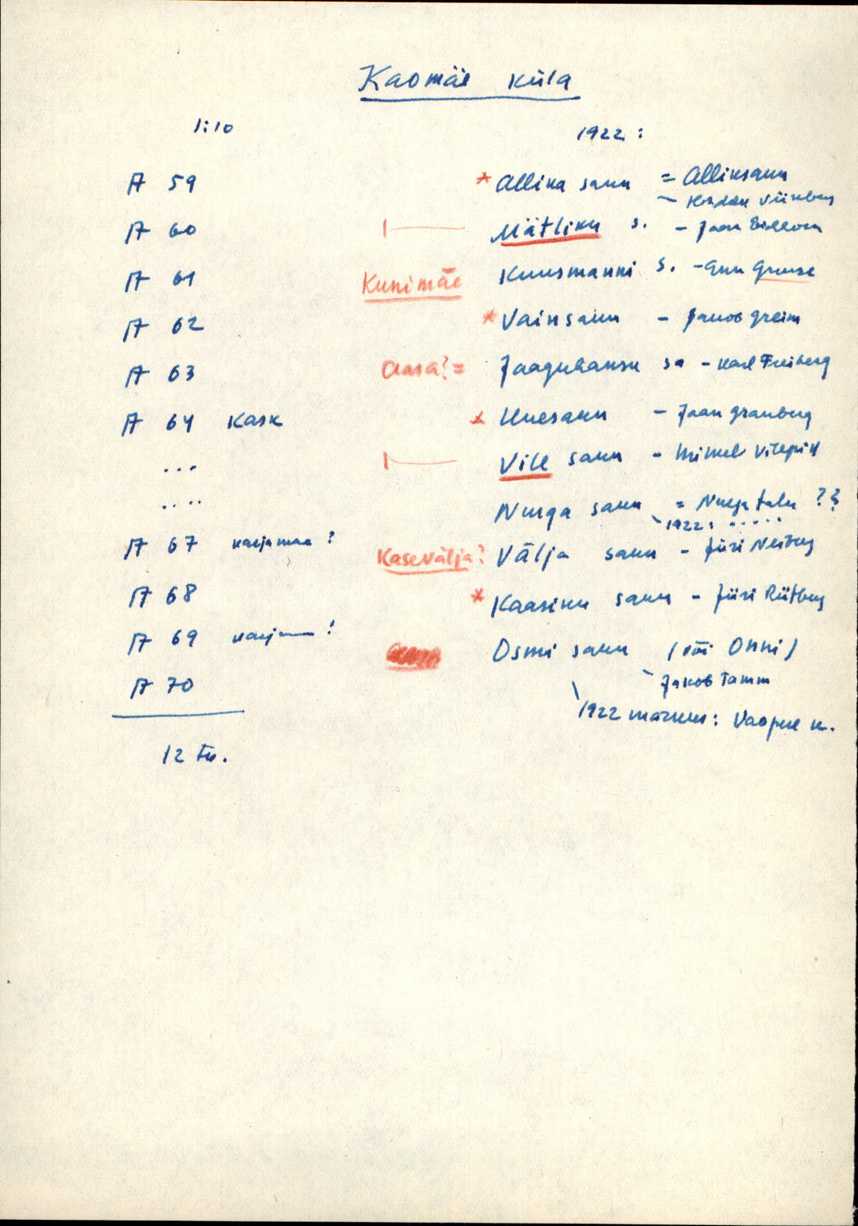 Kaomäe küla
1:10 1922:
A 59 * Allika saun = Alliksaun
A 60 Mätliku s. - Jaan
A 61 Kunimäe Kuusmanni s.
A 62 * Vainsaun - Jakob Greim
A 63 Aasa? = Jaaguhansu sa - Karl Freiberg
A 64 Kask * Uuesaun - Jaan Granberg
... Vile saun - Mihkel
.... Nurga saun = Nurga talu ??
1922: .....
A 67 karjamaa? Kasevälja? Välja saun - Jüri
A 68 * Kaasiku saun - Jüri Rütberg
A 69 Osmi saun (või Onni)
A 70 Jakob Tamm
1922 märkus: Vaopere k.
12 tk.